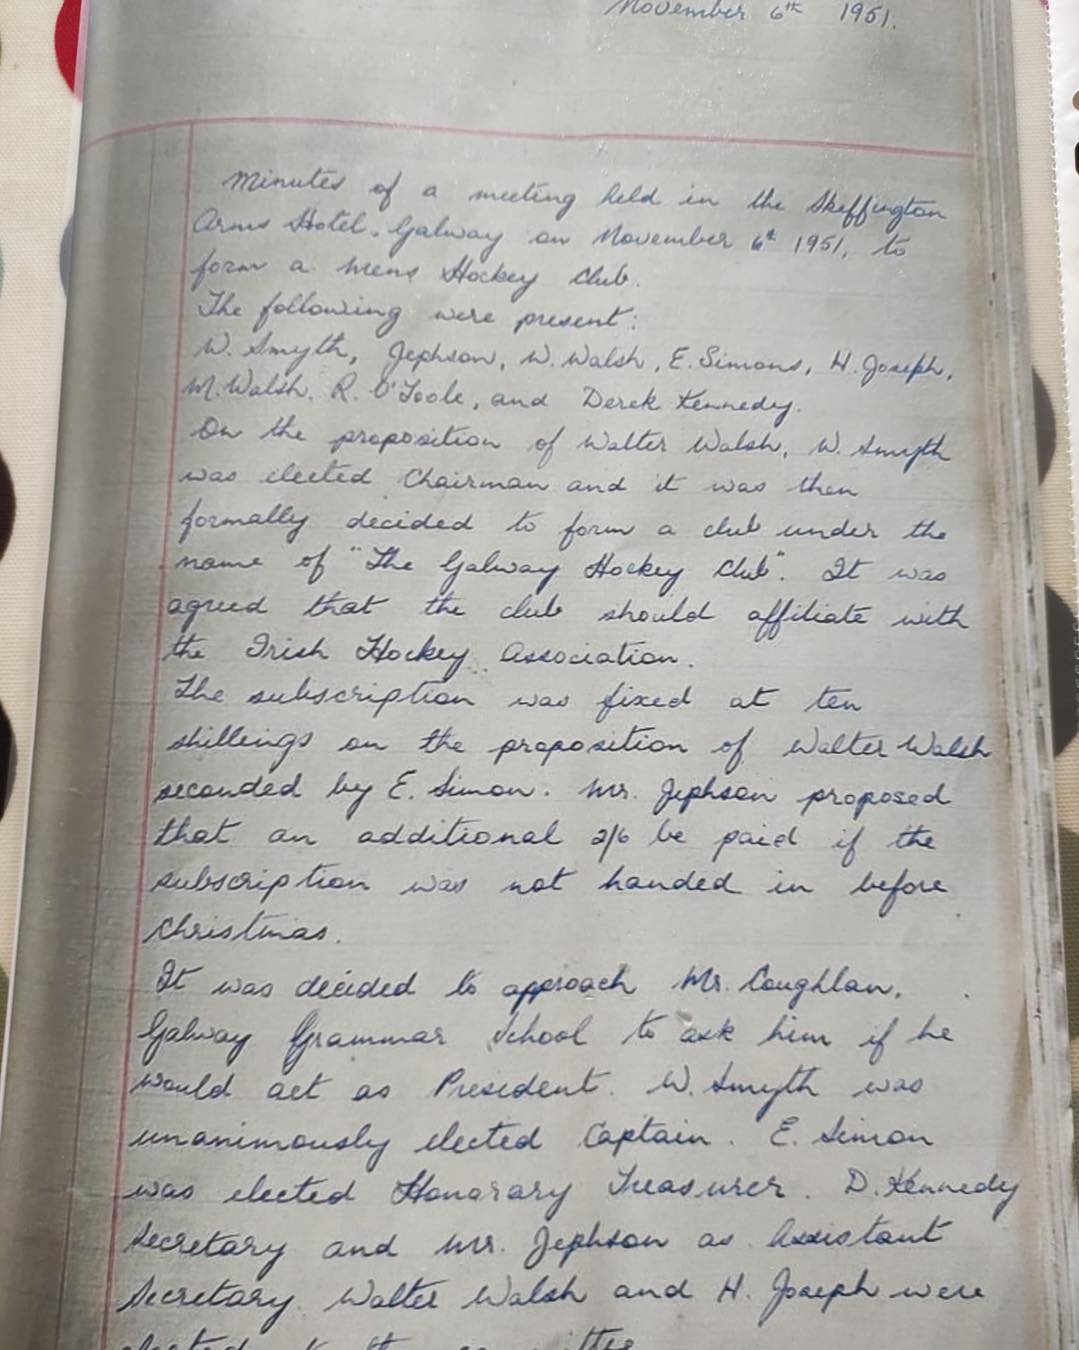 November 6th 1951.
Minutes of a meeting held in the Skeffington
Arms Hotel, Galway on November 6th 1951, to
form a mens Hockey Club.
The following were present:
W. Smyth, Jephson, W. Walsh, E. Simons, H. Joseph,
M. Walsh, R. O'Toole, and Derek Kennedy.
On the proposition of Walter Walsh, W. Smyth
was elected Chairman and it was then
formally decided to form a club under the
name of "The Galway Hockey Club". It was
agreed that the club should affiliate with
the Irish Hockey Association.
The subscription was fixed at ten
shillings on the proposition of Walter Walsh
seconded by E. Simon. Mr. Jephson proposed
that an additional 2/6 be paid if the
subscription was not handed in before
Christmas.
It was decided to approach Mr. Coughlan,
Galway Grammar School to ask him if he
would act as President. W. Smyth was
unanimously elected Captain. E. Simon
was elected Honorary Treasurer. D. Kennedy
Secretary and Mr. Jephson as Assistant
Secretary. Walter Walsh and H. Joseph were
elected to the committee